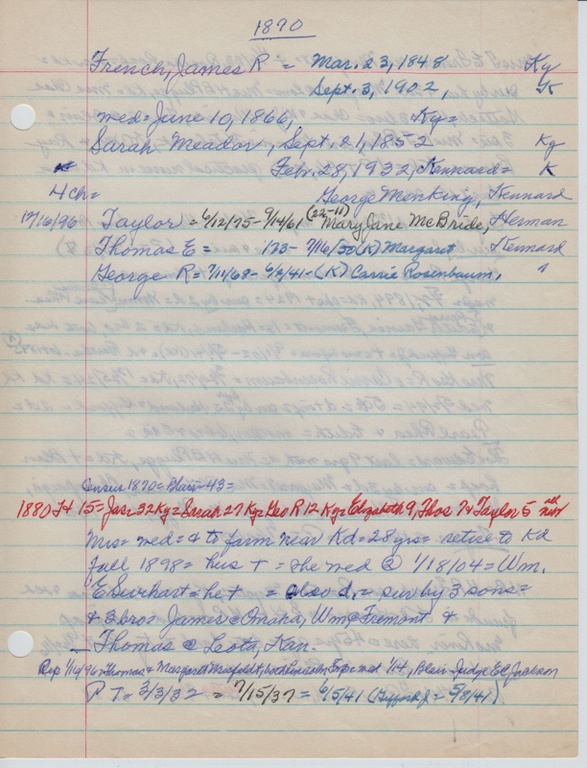 1890
French, James R = Mar. 23, 1848 Ky
Sept. 3, 1902, K
med = June 10, 1866, Ky =
Sarah Meador, Sept. 21, 1852 Ky
Feb. 28, 1932, Kennard = K
4 ch = George Menking, Kennard
12/16/96 Taylor = 6/12/75 - 9/14/61, (22-11) Mary Jane McBride, Herman
Thomas E = 173 - 7/16/50 (K) Margaret Kennard
George R = 7/11/68 - 6/9/41 - (K) Carrie Rosenbaum, "
Census 1870 = Blair 43 =
1880 Ft 15 = Jas 32 Ky = Sarah 27 Ky = Geo R 12 Ky = Elizabeth 9, Thos 7 & Taylor 5 all nbr
Mrs = med = & to farm near Kd = 28 yrs = retire to Kd
fall 1898 = hus + = she med @ 1/18/04 = Wm.
E Surhart = he + = also d. = surv by 3 sons =
& 3 bro = James @ Omaha, Wm @ Fremont &
Thomas @ Leota, Kan.
Thomas & Margaret med 1/4, Blair - Judge E C Jackson
P T = 3/3/32 = 7/15/37 = 6/5/41 = 5/8/41)